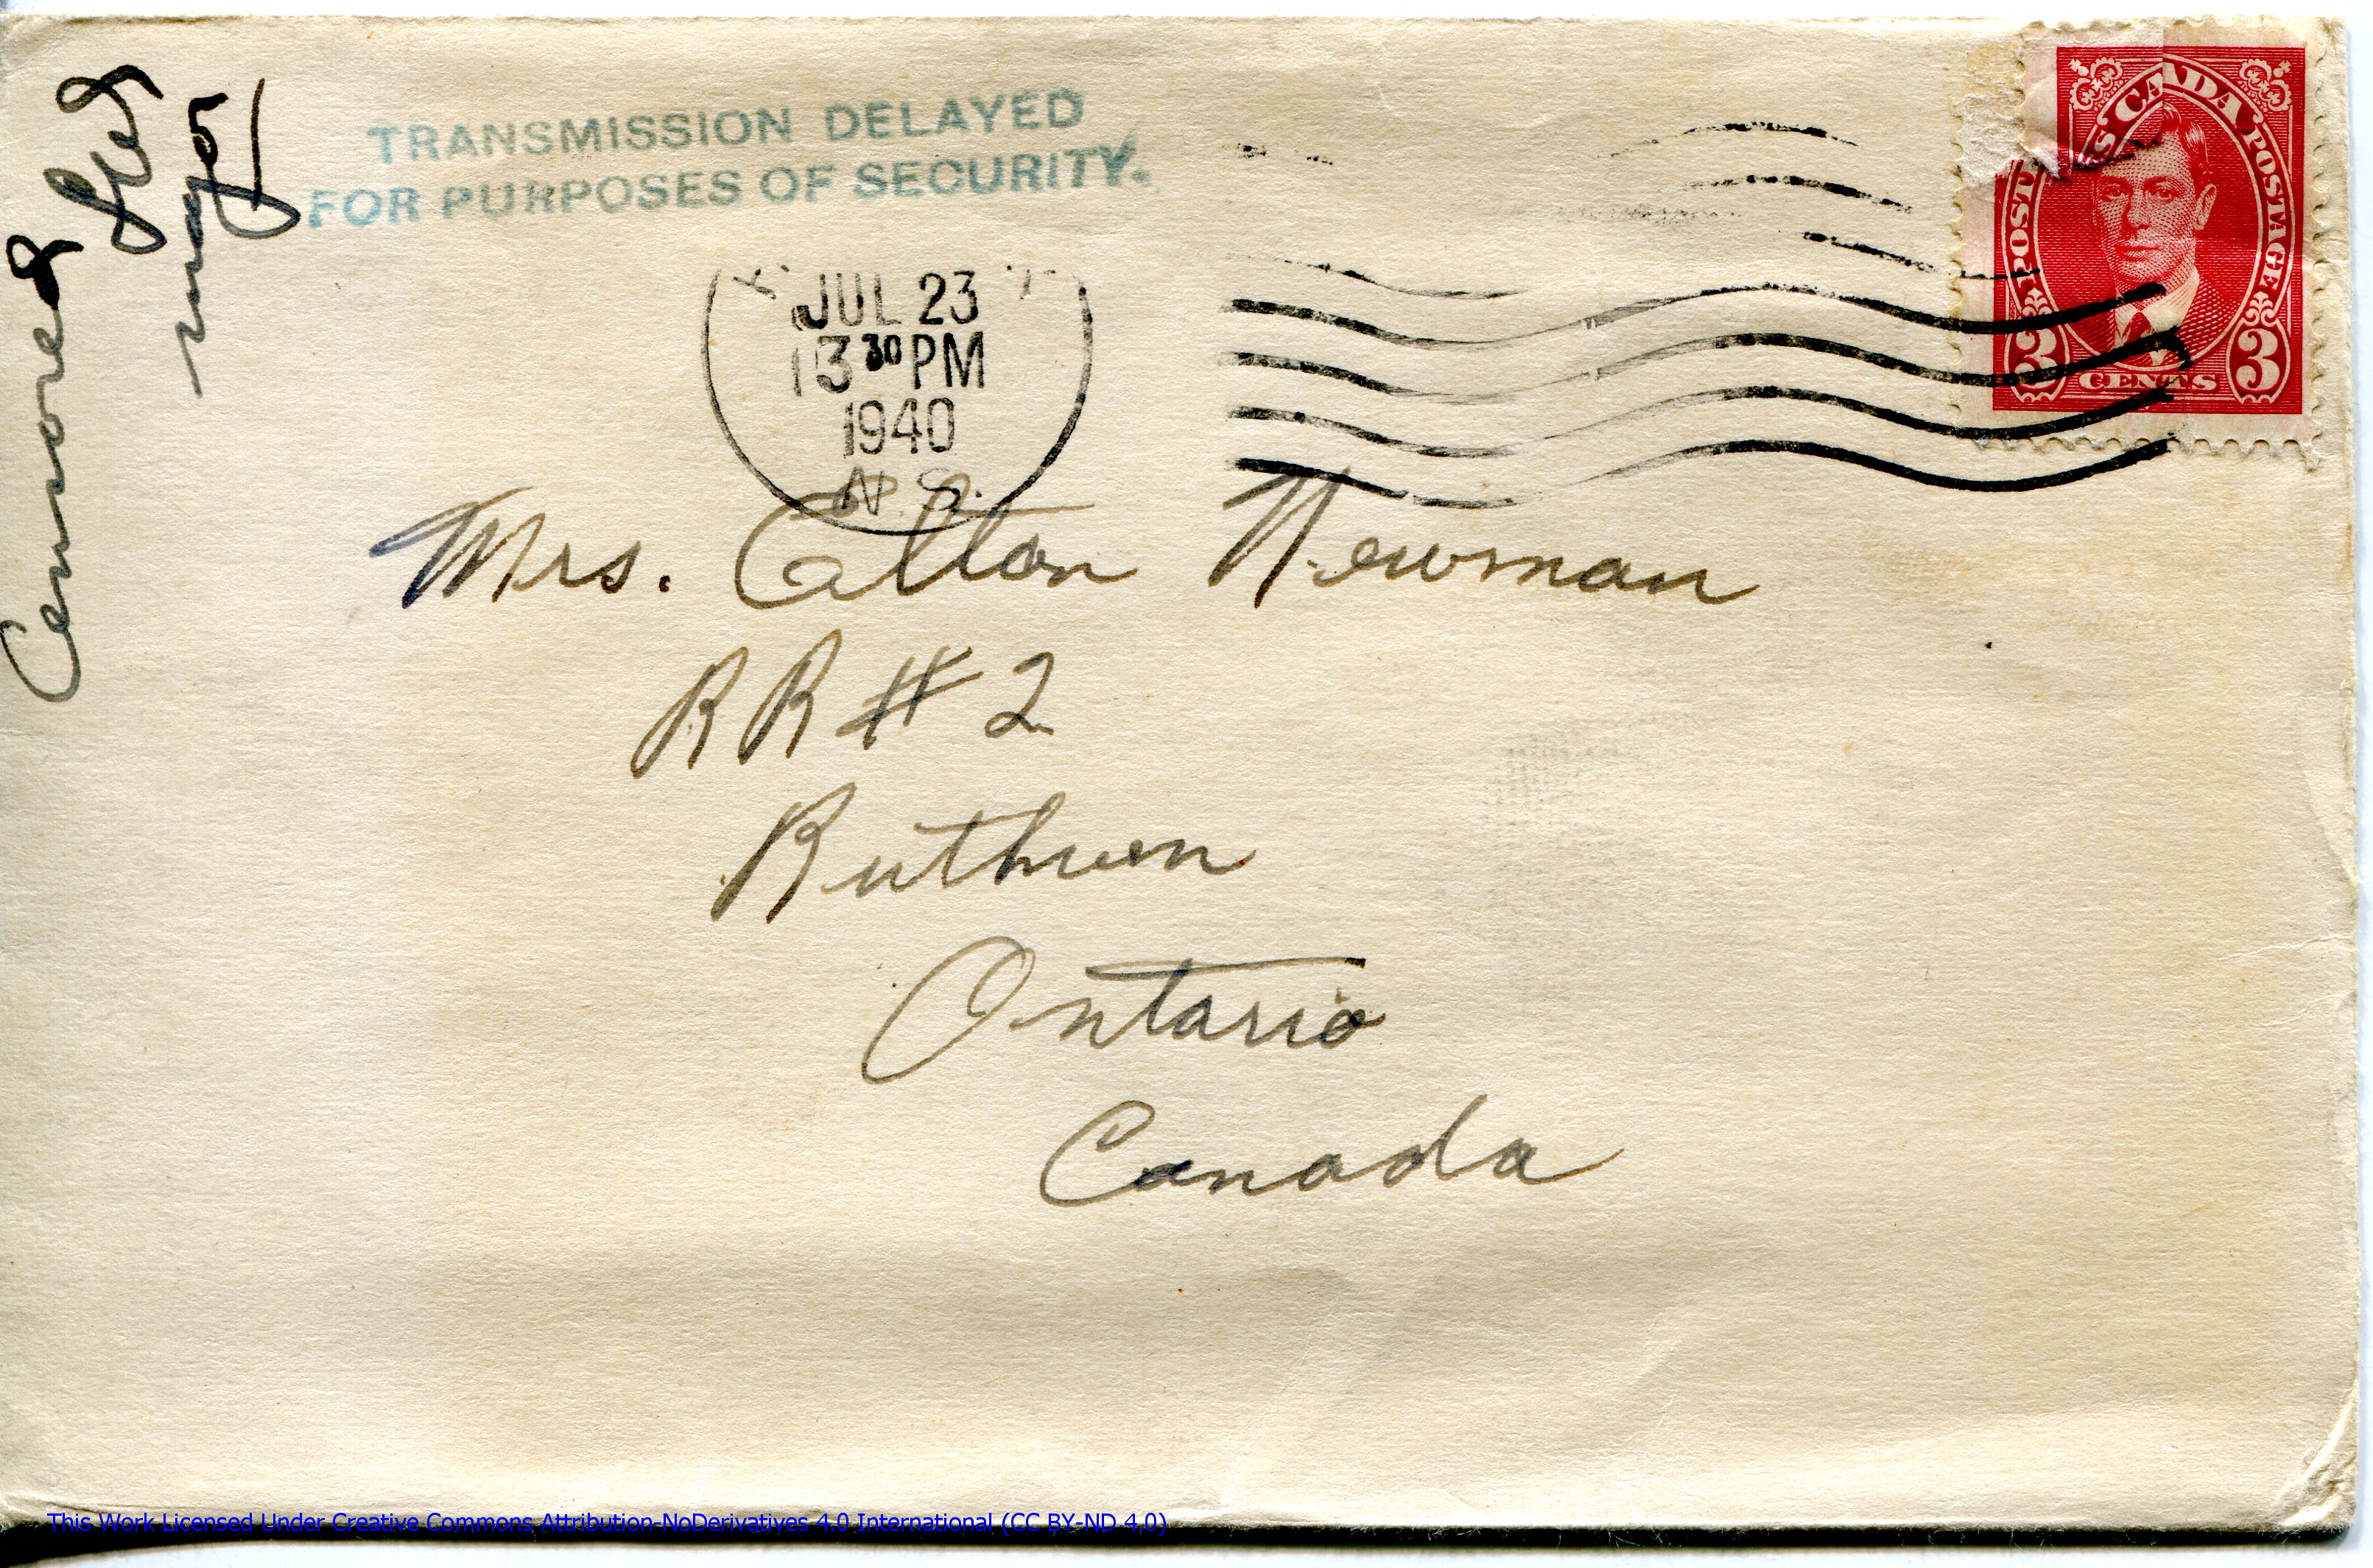 Censored
major
TRANSMISSION DELAYED
FOR PURPOSES OF SECURITY.
JUL 23
13 30 PM
1940
N.S.
POSTES CANADA POSTAGE
3 CENTS 3
Mrs. Colton Newman
RR # 2
Ruthven
Ontario
Canada
This Work Licensed Under Creative Commons Attribution-NoDerivatives 4.0 International (CC BY-ND 4.0)